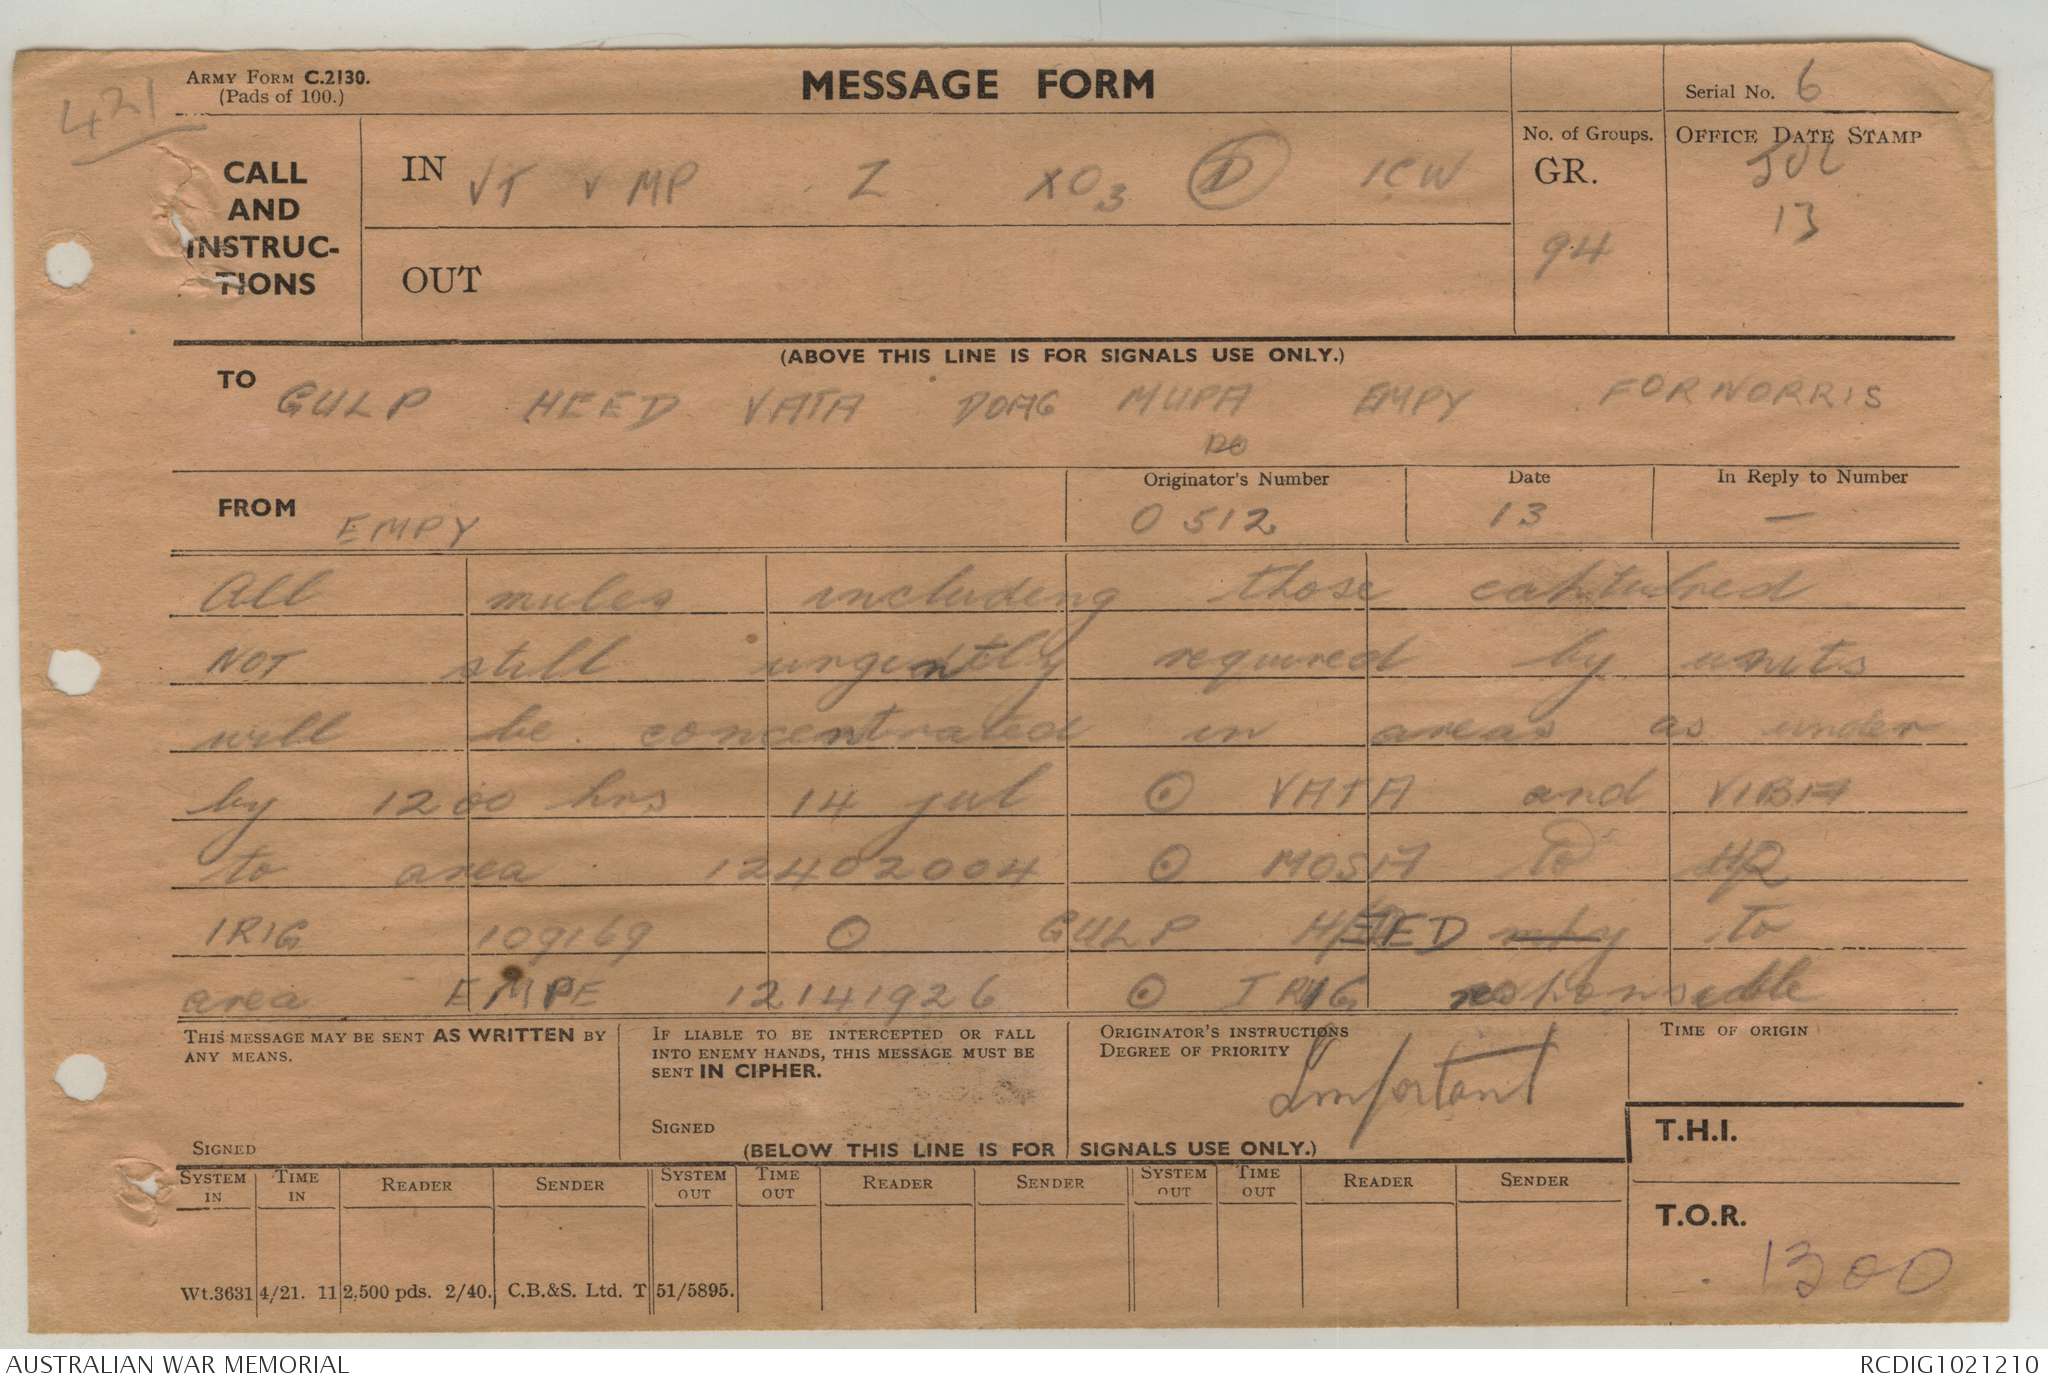 421
ARMY FORM C.2130.
(Pads of 100.)
MESSAGE FORM
Serial No. 6
CALL AND INSTRUC-TIONS
IN VT v MP Z XO3 D ICW
OUT
No. of Groups.
GR.
94
OFFICE DATE STAMP
JUL
13
(ABOVE THIS LINE IS FOR SIGNALS USE ONLY.)
TO GULP HEED VATA DOAG MUPA EMPY FOR NORRIS
FROM EMPY
Originator's Number
O 512
Date
13
In Reply to Number
—
All mules including those captured
NOT still urgently required by units
will be concentrated in areas as under
by 1200 hrs 14 jul ⊙ VATA and VIBA
to area 12402004 ⊙ MOSA to HQ
IRIG 109169 O GULP HEED to
area EMPE 12141926 ⊙ IRIG responsible
THIS MESSAGE MAY BE SENT AS WRITTEN BY
ANY MEANS.
SIGNED
IF LIABLE TO BE INTERCEPTED OR FALL
INTO ENEMY HANDS, THIS MESSAGE MUST BE
SENT IN CIPHER.
SIGNED
ORIGINATOR'S INSTRUCTIONS
DEGREE OF PRIORITY
Important
TIME OF ORIGIN
(BELOW THIS LINE IS FOR SIGNALS USE ONLY.)
T.H.I.
SYSTEM IN TIME IN READER SENDER SYSTEM OUT TIME OUT READER SENDER SYSTEM OUT TIME OUT READER SENDER
T.O.R.
1300
Wt.3631 4/21. 11 2,500 pds. 2/40. C.B.&S. Ltd. T 51/5895.
AUSTRALIAN WAR MEMORIAL
RCDIG1021210